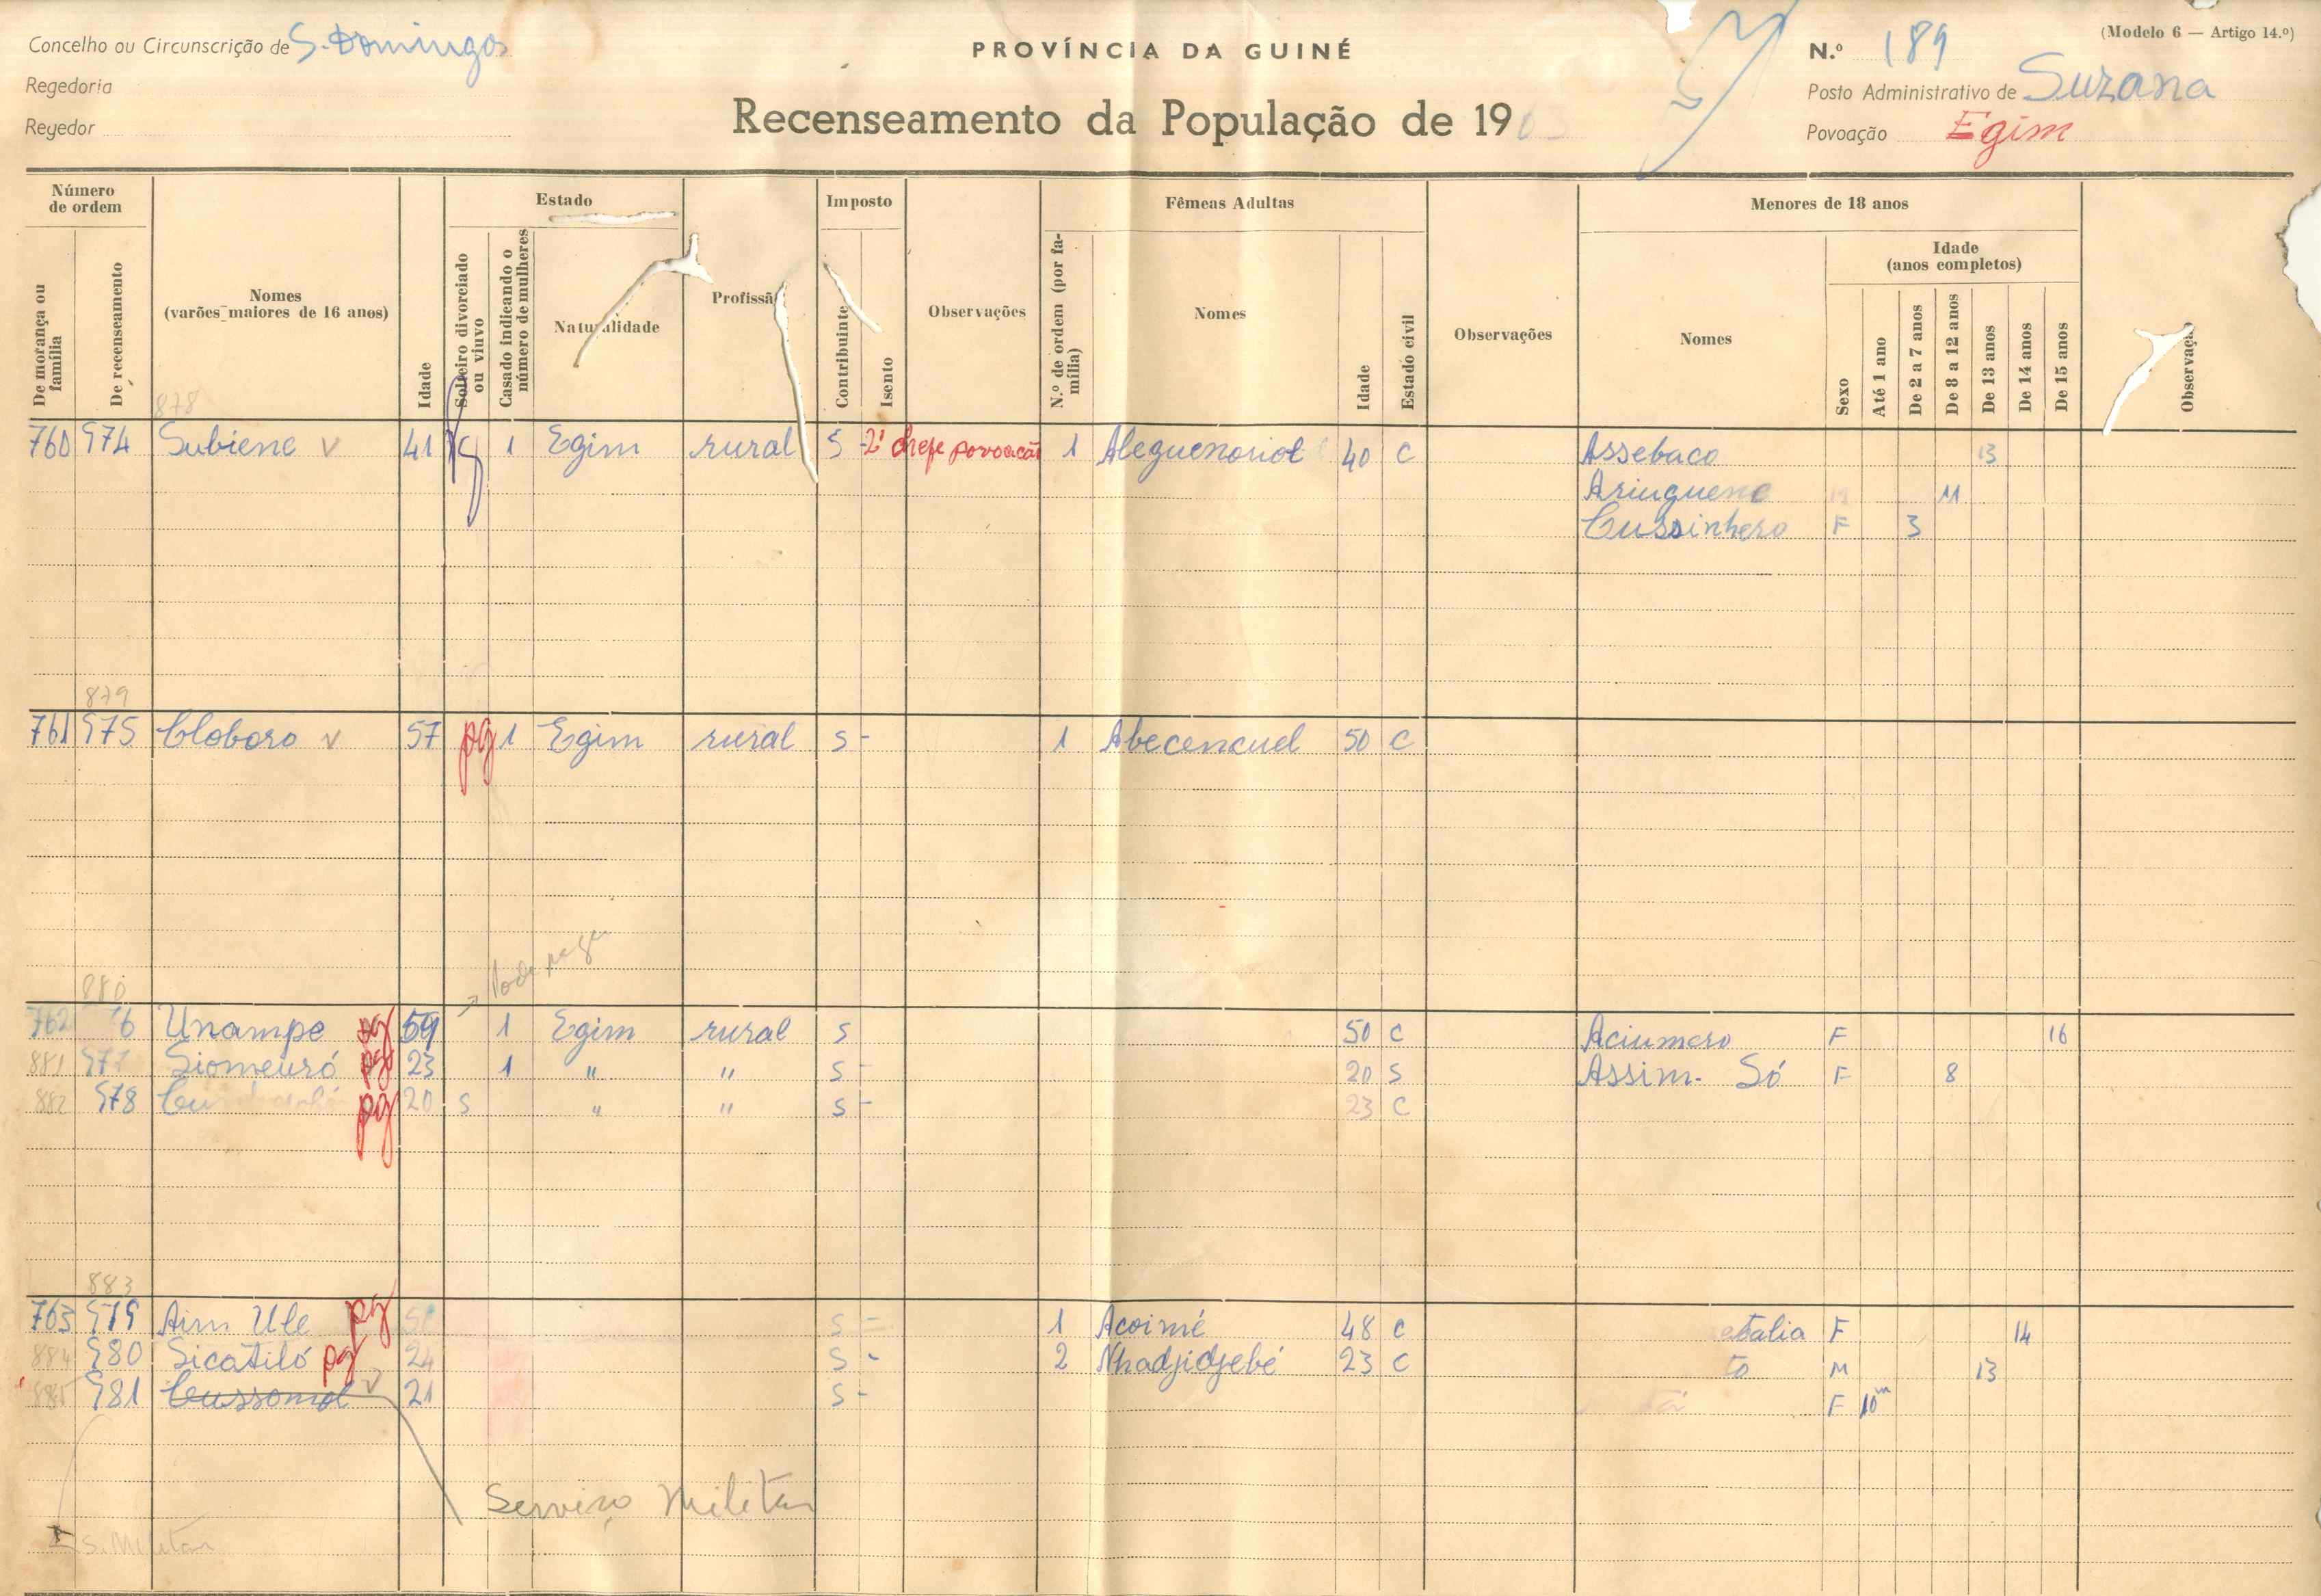 Concelho ou Circunscrição de S. Domingos
Regedoria
Regedor
PROVÍNCIA DA GUINÉ
Recenseamento da População de 19
(Modelo 6 — Artigo 14.º)
N.º 189
Posto Administrativo de Suzana
Povoação Egim
Número de ordem
De morança ou família
De recenseamento
Nomes (varões maiores de 16 anos)
Idade
Estado
Solteiro divorciado ou viuvo
Casado indicando o número de mulheres
Naturalidade
Profissã
Imposto
Contribuinte
Isento
Observações
Fêmeas Adultas
N.º de ordem (por família)
Nomes
Idade
Estado civil
Observações
Menores de 18 anos
Nomes
Idade (anos completos)
Sexo
Até 1 ano
De 2 a 7 anos
De 8 a 12 anos
De 13 anos
De 14 anos
De 15 anos
Observaç
878
760 974 Subiene v 41 1 Egim rural S - 2º chefe povoação 1 Aleguenoriol 40 C Assebaco 13
Aringuene M 11
Cussinhero F 3
879
761 975 Cloboro v 57 pg 1 Egim rural S - 1 Abecencuel 50 C
880
762 6 Unampe pg 59 1 Egim rural S 50 C Aciumero F 16
881 977 Siomeuró pg 23 1 " " S - 20 S Assim. Só F 8
882 978 pg 20 S " " S - 23 C
883
763 979 Aim Ule pg S - 1 Acoimé 48 C F 14
884 980 Sicatiló pg 24 S - 2 Nhadjidjebé 23 C M 13
885 981 Cussomol v 21 S - F 10m
Serviço Militar
S. Militar